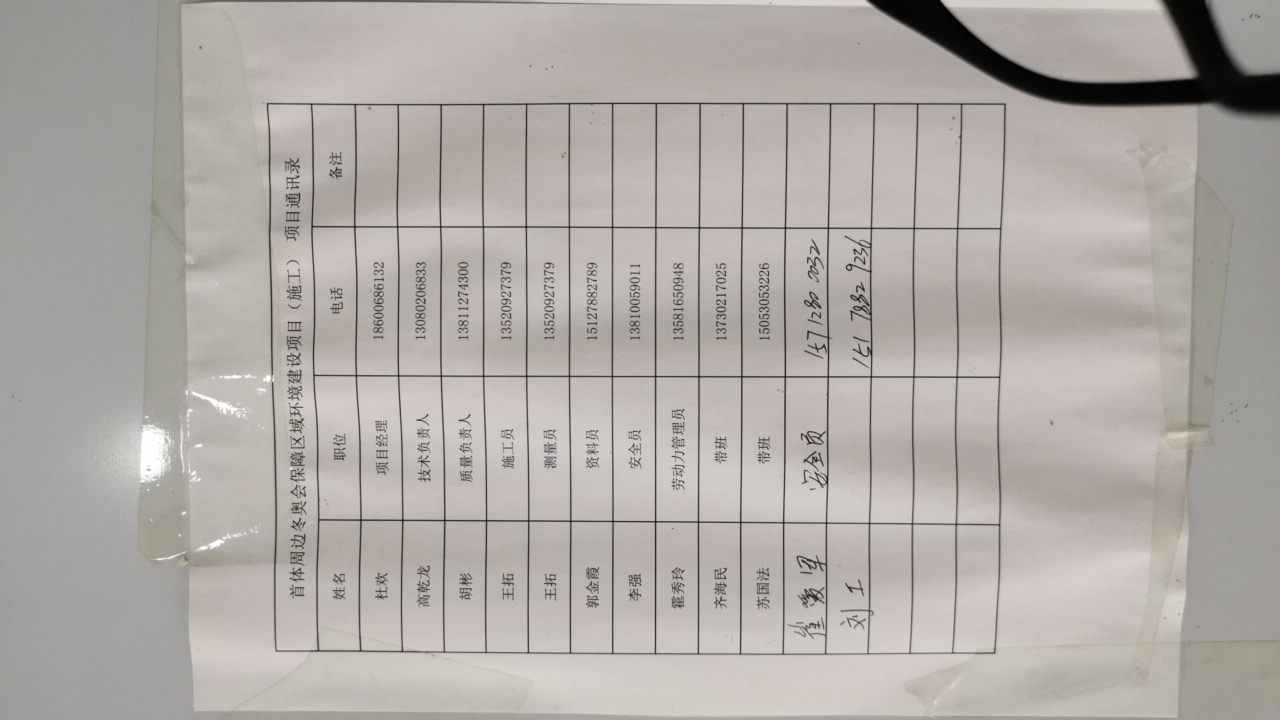 首体周边冬奥会保障区域环境建设项目（施工） 项目通讯录
姓名 职位 电话 备注
杜欢 项目经理 18600686132
高乾龙 技术负责人 13080206833
胡彬 质量负责人 13811274300
王拓 施工员 13520927379
王拓 测量员 13520927379
郭金霞 资料员 15127882789
李强 安全员 13810059011
霍秀玲 劳动力管理员 13581650948
齐海民 带班 13730217025
苏国法 带班 15053053226
崔 军 安全员 157 1280 0032
刘工 151 7882 9236